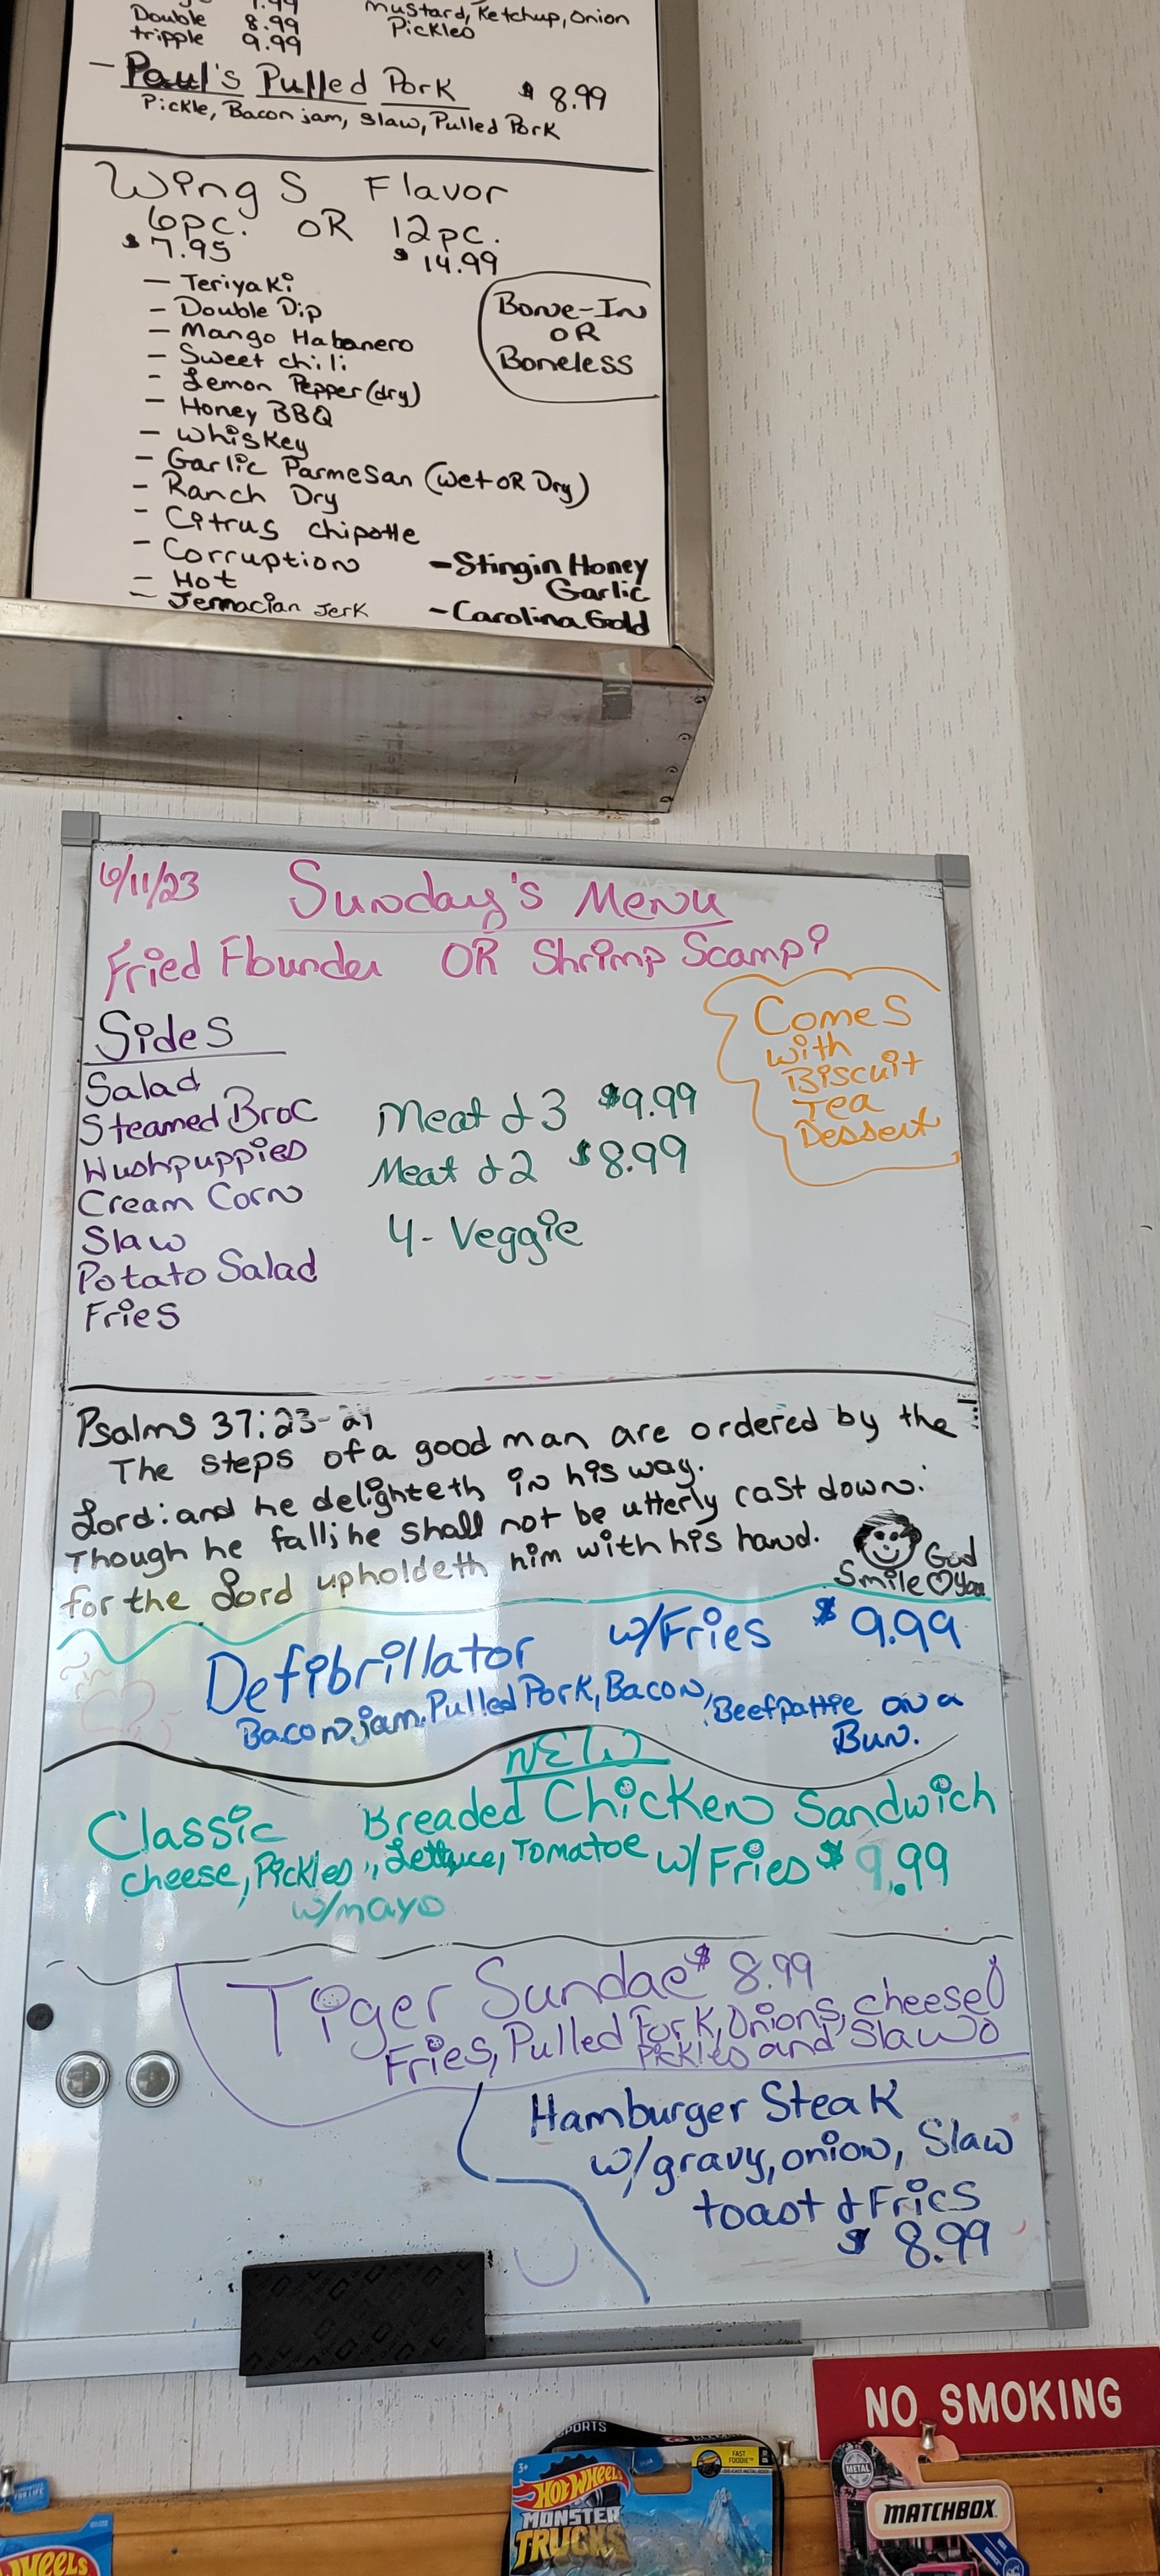 Double 8.99
tripple 9.99
Mustard, Ketchup, Onion
Pickleo
- Paul's Pulled Pork $8.99
Pickle, Bacon jam, Slaw, Pulled Pork
Wings Flavor
6pc. OR 12pc.
$7.95 $14.99
- Teriyaki
- Double Dip
- Mango Habanero
- Sweet chili
- Lemon Pepper (dry)
- Honey BBQ
- Whiskey
- Garlic Parmesan (Wet OR Dry)
- Ranch Dry
- Citrus chipotle
- Corruption
- Hot
- Jemacian Jerk
Bone-In
OR
Boneless
- Stingin Honey
Garlic
- Carolina Gold
6/11/23 Sunday's Menu
Fried Flounder OR Shrimp Scampi
Sides
Salad
Steamed Broc
Hushpuppies
Cream Corn
Slaw
Potato Salad
Fries
Meat & 3 $9.99
Meat & 2 $8.99
4- Veggie
Comes
with
Biscuit
Tea
Dessert
Psalms 37:23-24
The steps of a good man are ordered by the
Lord: and he delighteth in his way.
Though he fall; he shall not be utterly cast down:
for the Lord upholdeth him with his hand.
Smile God
♡ you
Defibrillator w/Fries $9.99
Bacon jam, Pulled Pork, Bacon, Beef pattie on a
Bun.
NEW
Classic Breaded Chicken Sandwich
cheese, Pickles, Lettuce, Tomatoe w/Fries $9.99
w/mayo
Tiger Sundae $8.99
Fries, Pulled Pork, Onions, cheese
Pickles and Slaw
Hamburger Steak
w/gravy, onion, Slaw
toast & Fries
$8.99
NO SMOKING
SPORTS
3+
HOT WHEELS
MONSTER
TRUCKS
FAST
FOODIE
METAL
MATCHBOX
WHEELS
FOR LIFE